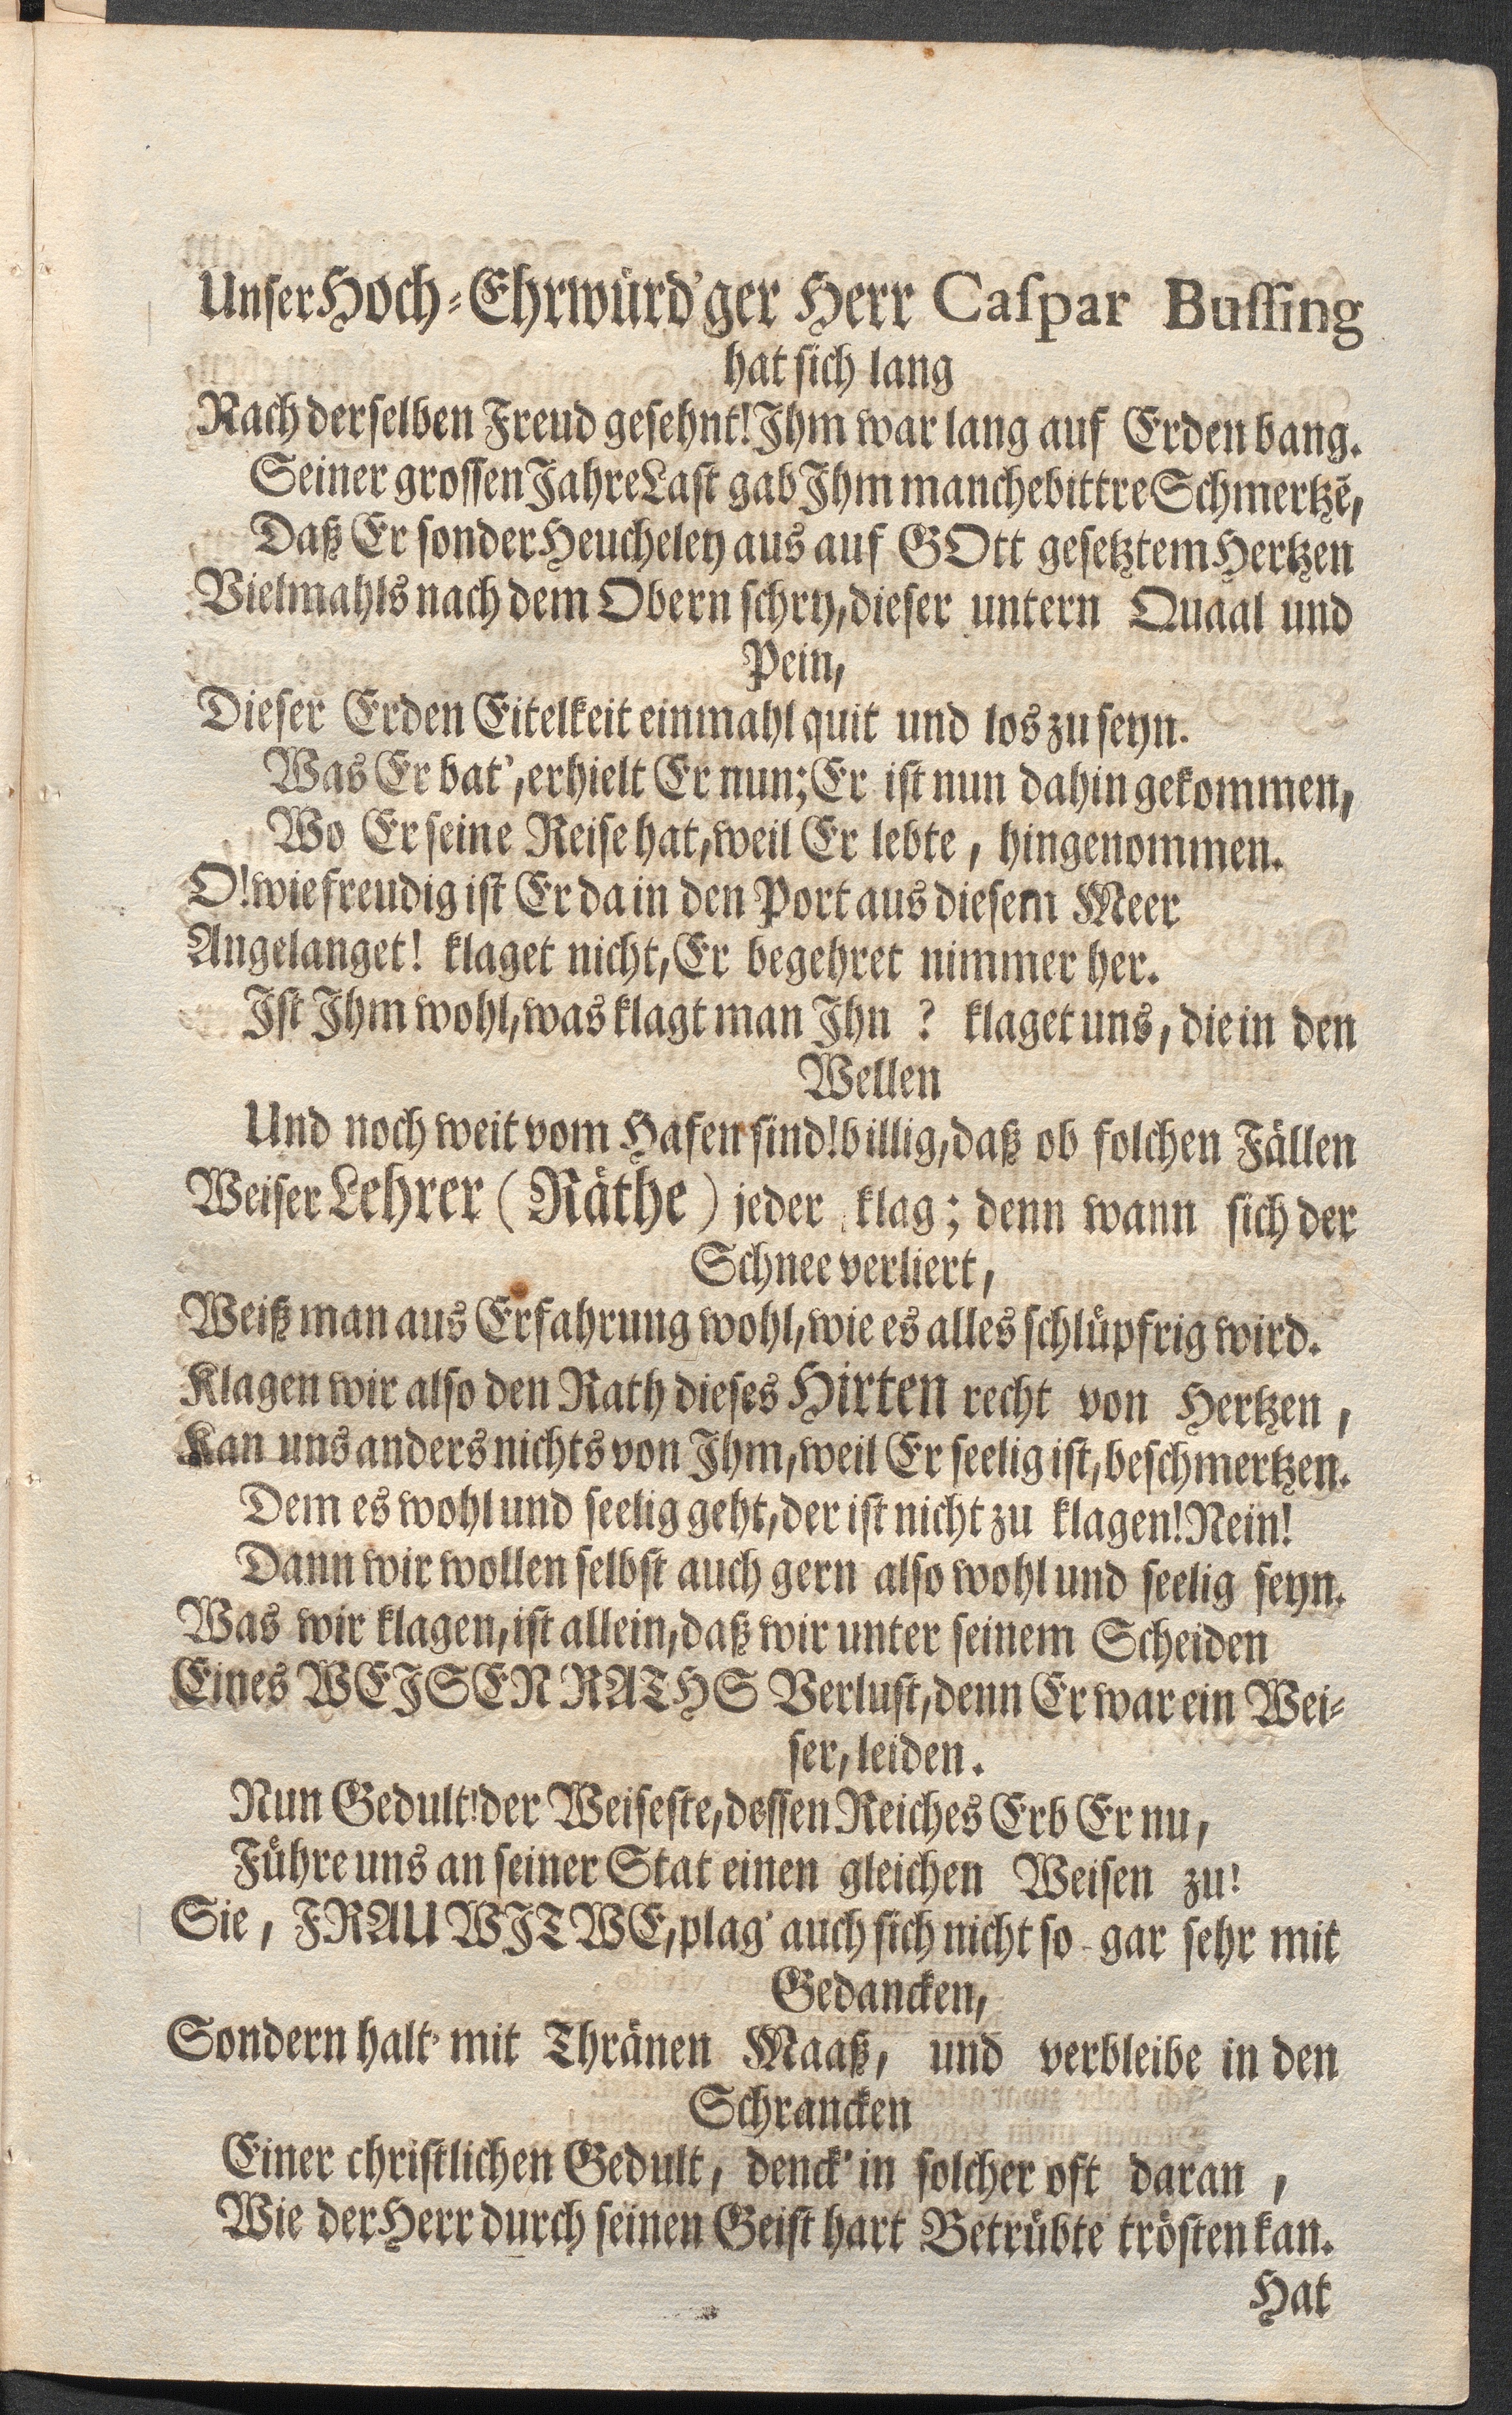 Unser Hoch-Ehrwürd'ger Herr Caspar Bussing
hat sich lang
Nach derselben Freud gesehnt! Ihm war lang auf Erden bang.
Seiner grossen Jahre Last gab Ihm manche bittre Schmertzē,
Daß Er sonder Heucheley aus auf GOtt gesetztem Hertzen
Vielmahls nach dem Obern schry, dieser untern Quaal und
Pein,
Dieser Erden Eitelkeit einmahl quit und los zu seyn.
Was Er bat', erhielt Er nun; Er ist nun dahin gekommen,
Wo Er seine Reise hat, weil Er lebte, hingenommen.
O! wie freudig ist Er da in den Port aus diesem Meer
Angelanget! klaget nicht, Er begehret nimmer her.
Ist Ihm wohl, was klagt man Ihn ? klaget uns, die in den
Wellen
Und noch weit vom Hafen sind! billig, daß ob solchen Fällen
Weiser Lehrer (Räthe) jeder klag; denn wann sich der
Schnee verliert,
Weiß man aus Erfahrung wohl, wie es alles schlüpfrig wird.
Klagen wir also den Rath dieses Hirten recht von Hertzen,
Kan uns anders nichts von Ihm, weil Er seelig ist, beschmertzen.
Dem es wohl und seelig geht, der ist nicht zu klagen! Nein!
Dann wir wollen selbst auch gern also wohl und seelig seyn.
Was wir klagen, ist allein, daß wir unter seinem Scheiden
Eines WEISEN RATHS Verlust, denn Er war ein Wei-
ser, leiden.
Nun Gedult! der Weiseste, dessen Reiches Erb Er nu,
Führe uns an seiner Stat einen gleichen Weisen zu!
Sie, FRAU WITWE, plag' auch sich nicht so-gar sehr mit
Gedancken,
Sondern halt' mit Thränen Maaß, und verbleibe in den
Schrancken
Einer christlichen Gedult, denck' in solcher oft daran,
Wie der Herr durch seinen Geist hart Betrübte trösten kan.
Hat